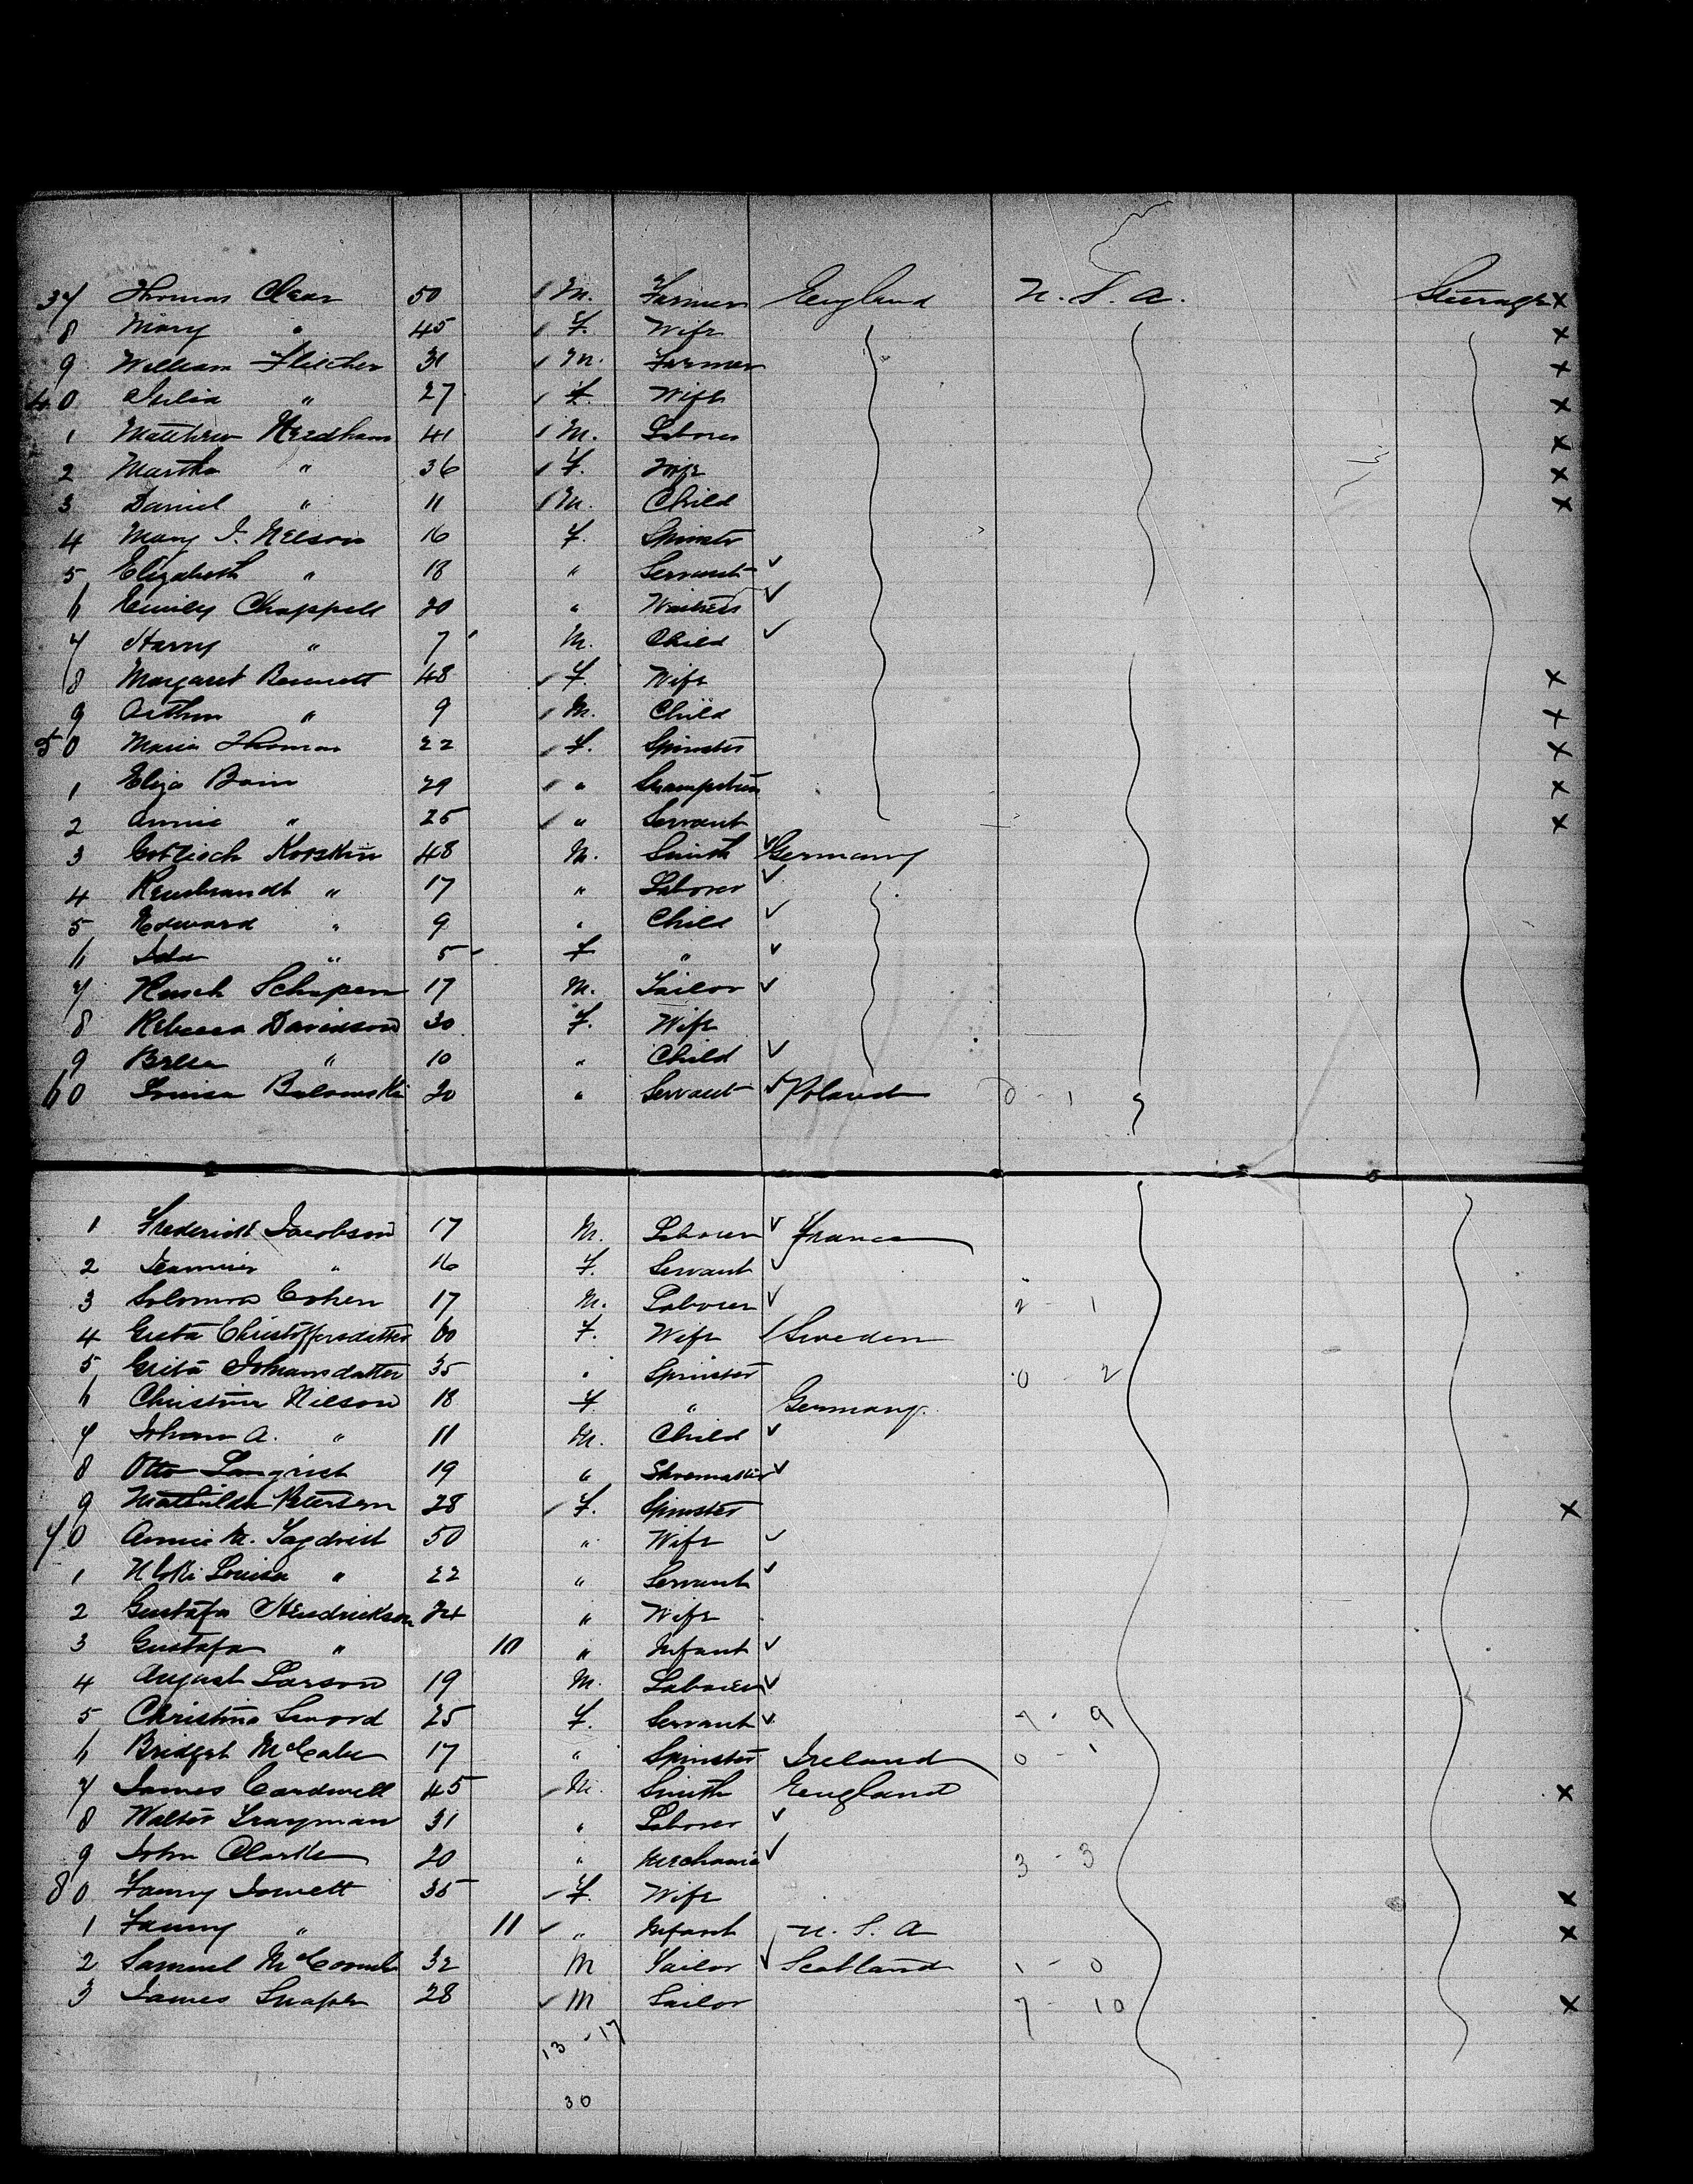 37 Thomas Clear 50 M. Farmer England U. S. A. Steerage x
8 Mary " 45 F. Wife x
9 William Fletcher 31 M. Farmer x
40 Julia " 27 F. Wife x
1 Matthew Needham 41 M. Laborer x
2 Martha " 36 F. Wife x
3 Daniel " 11 M. Child x
4 Mary J. Nelson 16 F. Spinster
5 Elizabeth " 18 " Servant ✓
6 Emily Chappell 20 " Waitress ✓
7 Harry " 7 M. Child ✓
8 Margaret Bennett 48 F. Wife x
9 Arthur " 9 M. Child x
50 Maria Thomas 22 F. Spinster x
1 Eliza Bain 29 " x
2 Annie " 25 " Servant x
3 48 M. Smith ✓ Germany
4 Rembrandt " 17 " Laborer ✓
5 Edward " 9 " Child ✓
6 Ida " 5 F " ✓
7 17 M. Tailor ✓
8 Rebecca Davidson 30 F. Wife
9 Bella " 10 " Child ✓
60 Louisa 20 " Servant ✓ Poland 0 - 1
1 Frederick Jacobson 17 M. Laborer ✓ France
2 " 16 F. Servant ✓
3 Solomon Cohen 17 M. Laborer ✓ 2 - 1
4 Greta Christoffersdatter 60 F. Wife Sweden
5 Greta Johansdatter 35 " Spinster 0 - 2
6 Christine Nilson 18 F " Germany.
7 Johan A. " 11 M. Child ✓
8 Otto 19 " Shoemaker ✓
9 Mathilda Peterson 28 F. Spinster x
70 Annie M. 50 " Wife ✓
1 Louisa " 22 " Servant ✓
2 Gustafa Hendrickson 24 " Wife
3 Gustafa " 10 " Infant ✓
4 August Larson 19 M. Laborer ✓
5 Christina 25 F. Servant ✓ 7 - 9
6 Bridget McCabe 17 " Spinster Ireland 0 - 1
7 James Cardwell 45 M. Smith England x
8 Walter 31 " Laborer ✓
9 John Clarke 20 " Mechanic ✓ 3 - 3
80 Fanny Jowett 35 F. Wife x
1 Fanny " 11 " Infant U. S. A x
2 Samuel 32 M Tailor ✓ Scotland 1 - 0
3 James 28 M Sailor 7 - 10 x
13 - 17
30